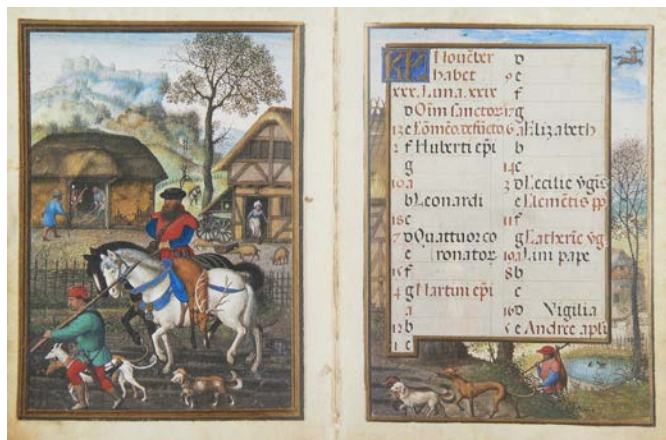 KL Nouẽber
habet
xxx. Luna. xxix
d Oĩm sanctor
13 e Cõmẽo. defuncto
2 f Huberti epĩ
g
10 a
b Leonardi
18 c
7 d Quattuor co
e ronator
15 f
4 g Martini epĩ
a
12 b
1 c
d
9 e
f
17 g
6 a Elizabeth
b
14 c
3 d Cecilie vg̃is
e Clemẽtis pp
11 f
g Catherĩe vg̃
19 a Lini pape
8 b
c
16 d Vigilia
5 e Andree apli